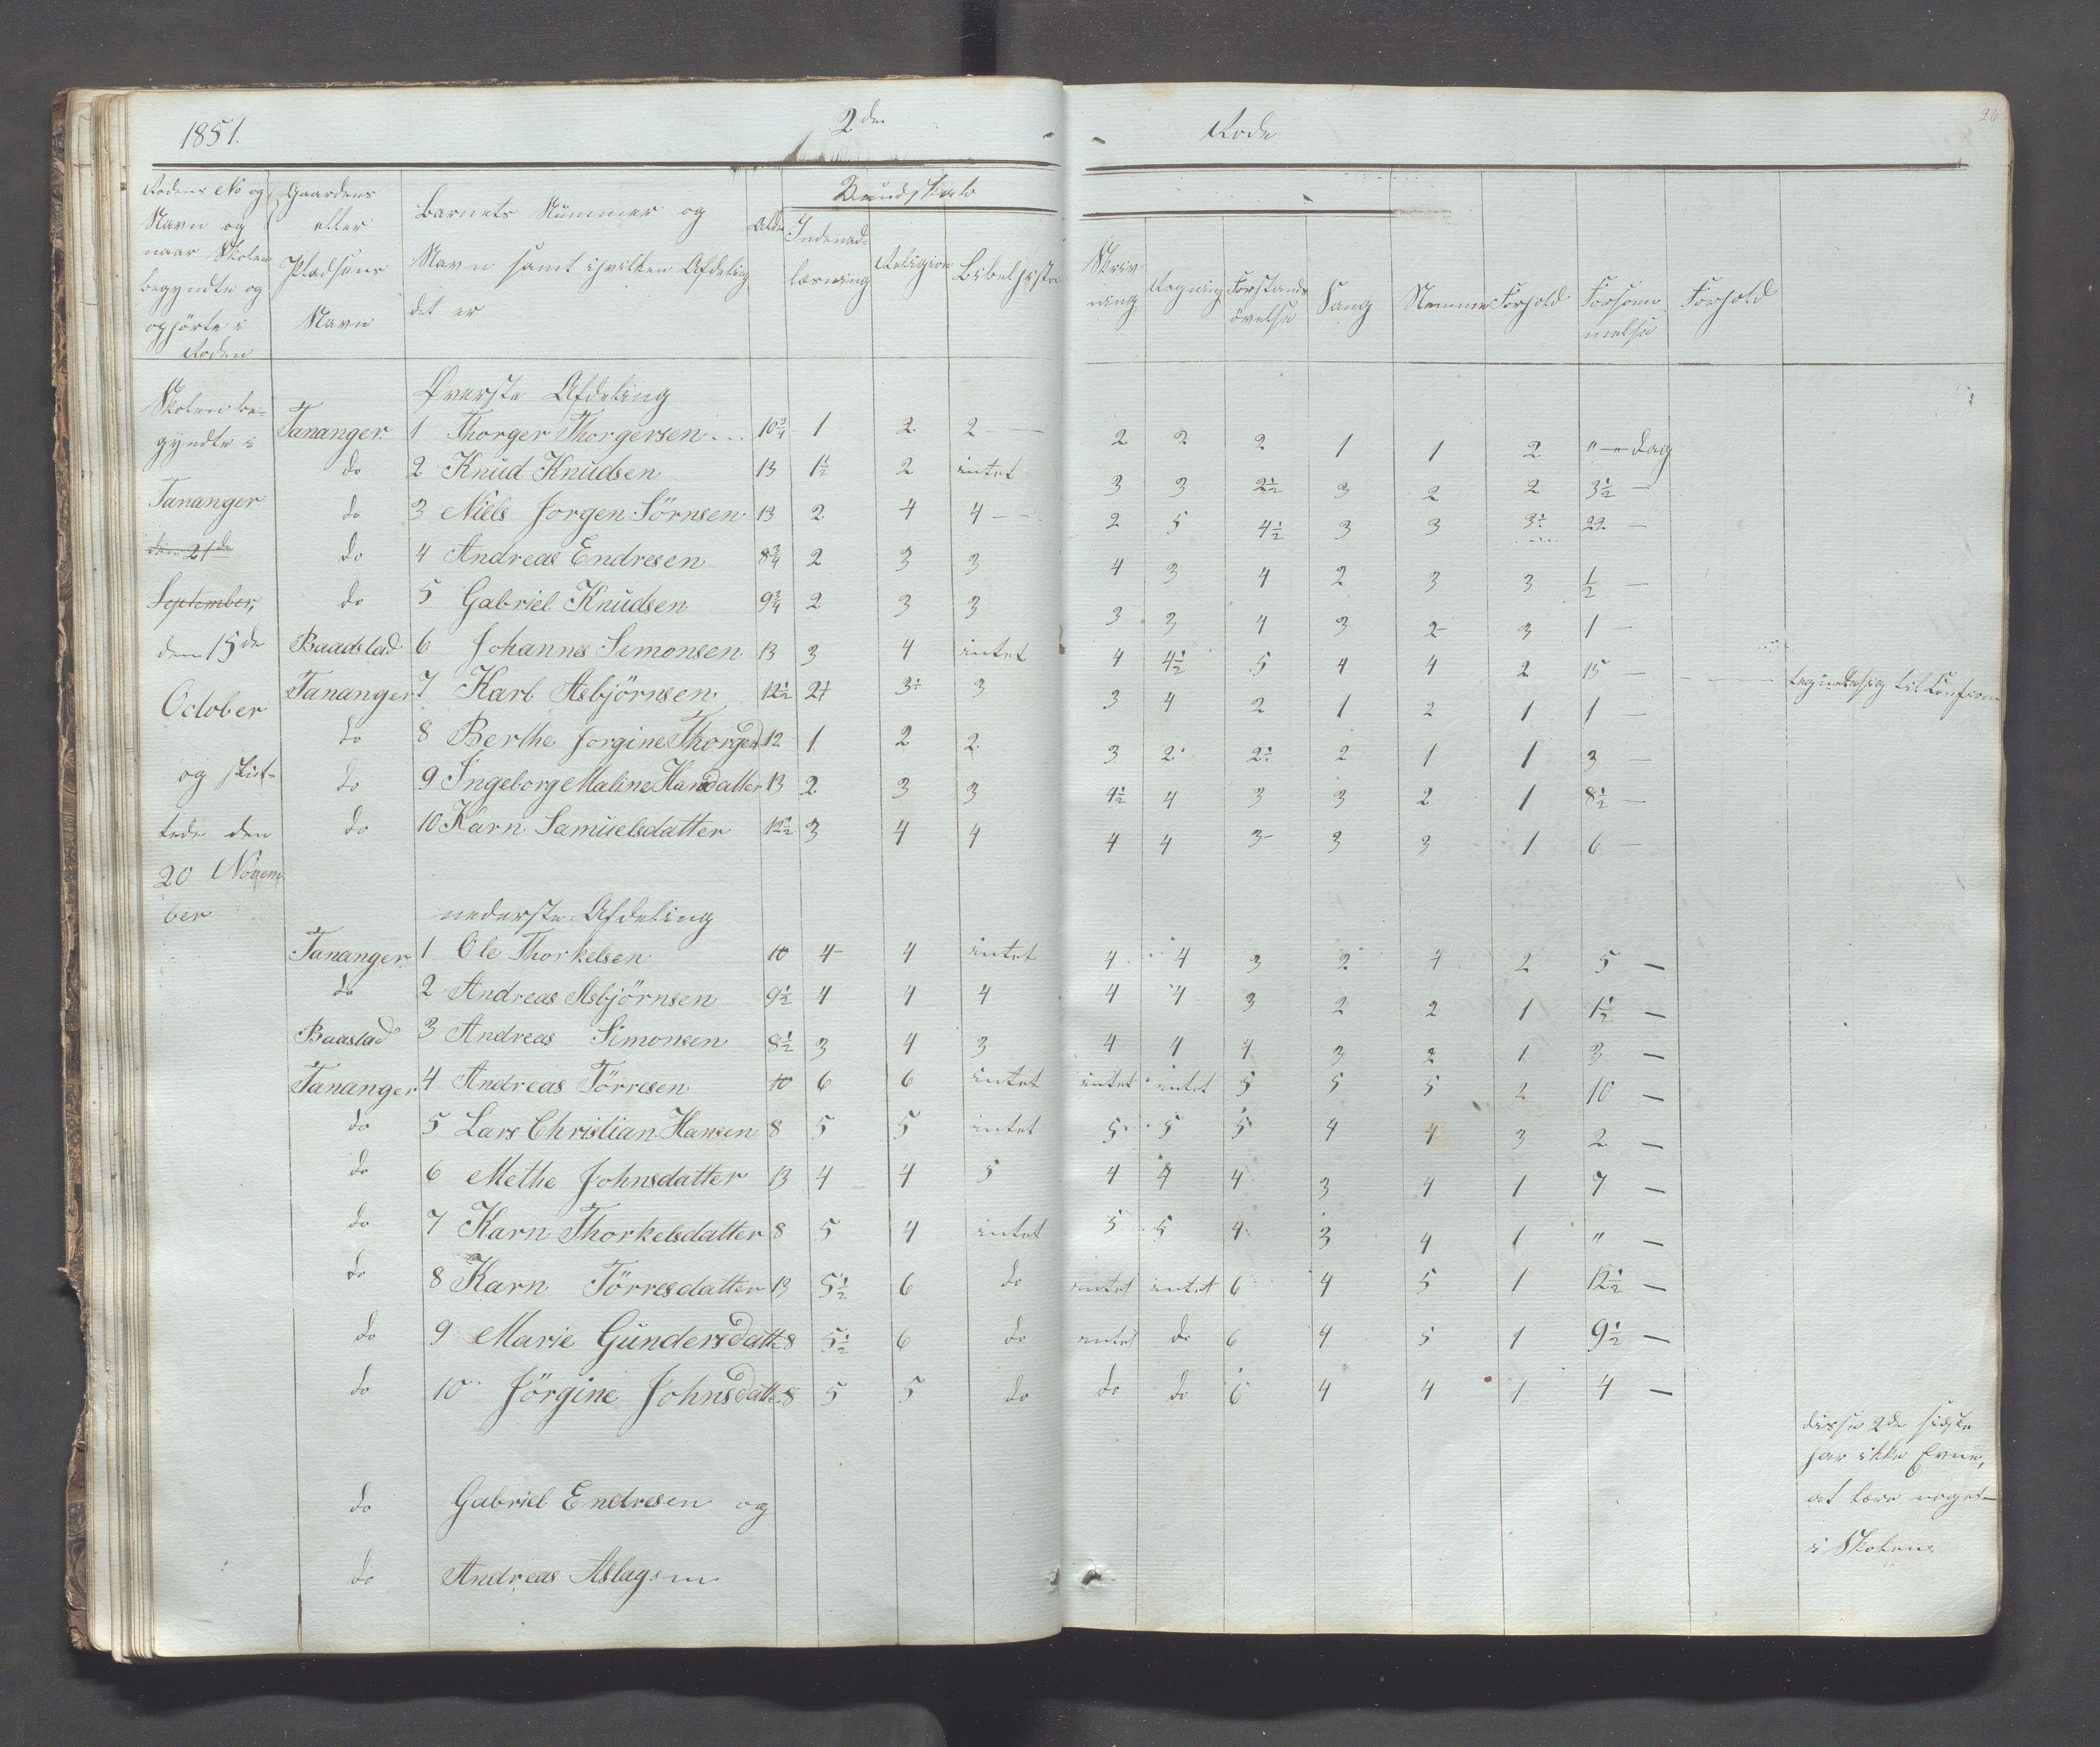 1851. 2den Rode 26
Rodens No og Navn og naar Skolen begyndte og ophörte i Roden | Gaardens eller Pladsens Navn | Barnets Nummer og Navn samt ihvilken Afdeling det er | Alder | Kundskab | Indenadlæsning | Religion | Bibelhistor | Skrivning | Regning | Forstandsövelse | Sang | Nemme | Forhold | Forsömmelse | Forhold
Skolen be-
gyndte i
Tananger
den 21de
September,
den 15de
October
og slut-
tede den
20 Novem
ber
Øverste Afdeling
Tananger 1 Thorger Thorgersen 10 3/4 1 2 2 — 2 2 2 1 1 2 " — Dag
do 2 Knud Knudsen 13 1 1/2 2 intet 3 3 2 1/2 3 2 2 3 1/2 —
do 3 Niels Jorgen Sörnsen 13 2 4 4 — 2 5 4 1/2 3 3 3 ÷ 22 —
do 4 Andreas Endresen 8 3/4 2 3 3 4 3 4 2 3 3 1/2 —
do 5 Gabriel Knudsen 9 3/4 2 3 3 3 3 4 3 2 3 1 —
Baadstad 6 Johannes Simonsen 13 3 4 intet 4 4 1/2 5 4 4 2 15 —
Tananger 7 Karl Asbjörnsen 12 1/2 2 3 ÷ 3 3 4 2 1 2 1 1 —
do 8 Berthe Jorgine Thorgd 12 1 2 2 3 2 2 ÷ 2 1 1 3 —
do 9 Ingeborg Maline Hansdatter 13 2 3 3 4 1/2 4 3 3 2 1 8 1/2 —
do 10 Karn Samuelsdatter 12 1/2 3 4 4 4 4 3 3 3 1 6 —
nederste Afdeling
Tananger 1 Ole Thorkelsen 10 4 4 intet 4 4 3 2 4 2 5 —
do 2 Andreas Asbjörnsen 9 1/2 4 4 4 4 4 3 2 2 1 1 1/2 —
Baastad 3 Andreas Simonsen 8 1/2 3 4 3 4 4 4 3 2 1 3 —
Tananger 4 Andreas Törresen 10 6 6 intet intet intet 5 5 5 2 10 —
do 5 Lars Christian Hansen 8 5 5 intet 5 5 5 4 4 3 2 —
do 6 Methe Johnsdatter 13 4 4 5 4 4 4 3 4 1 7 —
do 7 Karn Thorkelsdatter 8 5 4 intet 5 5 4 3 4 1 " —
do 8 Karn Törresdatter 13 5 1/2 6 do intet intet 6 4 5 1 12 1/2 —
do 9 Marie Gundersdatt 8 5 1/2 6 do intet do 6 4 5 1 9 1/2 —
do 10 Jörgine Johnsdatt 8 5 5 do do do 6 4 4 1 4 —
do Gabriel Endresen og
do Andreas Aslagsen
disse 2de sidste
har ikke Evne,
at lære noget
i Skolen